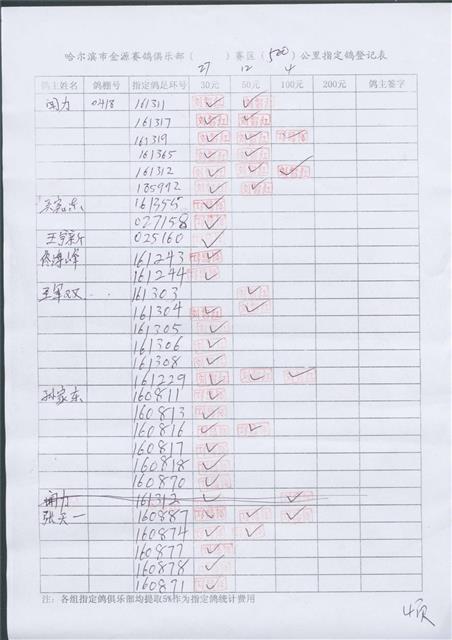 哈尔滨市金源赛鸽俱乐部（ ）赛区（500）公里指定鸽登记表
27 12 4
鸽主姓名 鸽棚号 指定鸽足环号 30元 50元 100元 200元 鸽主签字
闻力 0418 161311 ✓ ✓
161317 ✓ ✓
161319 ✓ ✓ ✓
161365 ✓ ✓
161312 ✓ ✓ ✓
185992 ✓ ✓
161355 ✓
027158 ✓
025160 ✓
161243 ✓
161244 ✓
161303 ✓
161304 ✓ ✓
161305 ✓
161306 ✓
161308 ✓
161229 ✓ ✓ ✓
孙家东 160811 ✓
160813 ✓
160816 ✓ ✓
160817 ✓
160818 ✓
160870 ✓
闻力 161312 ✓ ✓
张天一 160887 ✓ ✓ ✓
160874 ✓ ✓
160877 ✓
160878 ✓
160871 ✓
注：各组指定鸽俱乐部均提取5%作为指定鸽统计费用
4页